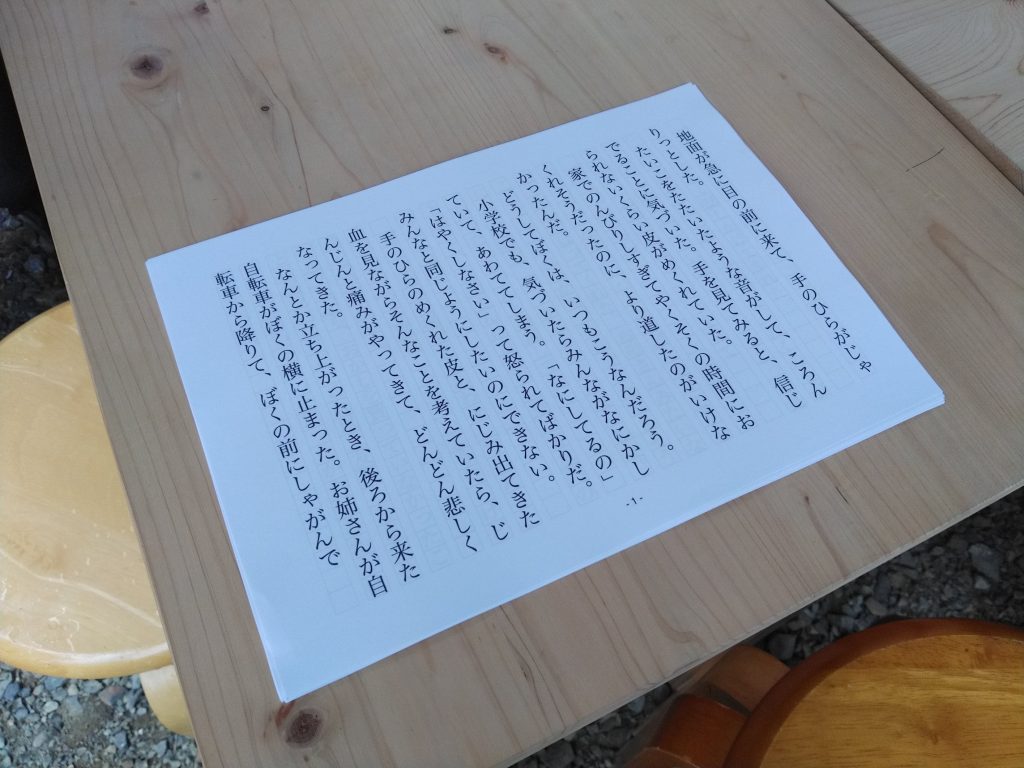 地面が急に目の前に来て、手のひらがじゃ
りっとした。
たいこをたたいたような音がして、ころん
でることに気づいた。手を見てみると、信じ
られないくらい皮がめくれていた。
家でのんびりしすぎてやくそくの時間にお
くれそうだったのに、より道したのがいけな
かったんだ。
どうしてぼくは、いつもこうなんだろう。
小学校でも、気づいたらみんながなにかし
ていて、あわててしまう。「なにしてるの」
「はやくしなさい」って怒られてばかりだ。
みんなと同じようにしたいのにできない。
手のひらのめくれた皮と、にじみ出てきた
血を見ながらそんなことを考えていたら、じ
んじんと痛みがやってきて、どんどん悲しく
なってきた。
なんとか立ち上がったとき、後ろから来た
自転車がぼくの横に止まった。お姉さんが自
転車から降りて、ぼくの前にしゃがんで
-1-